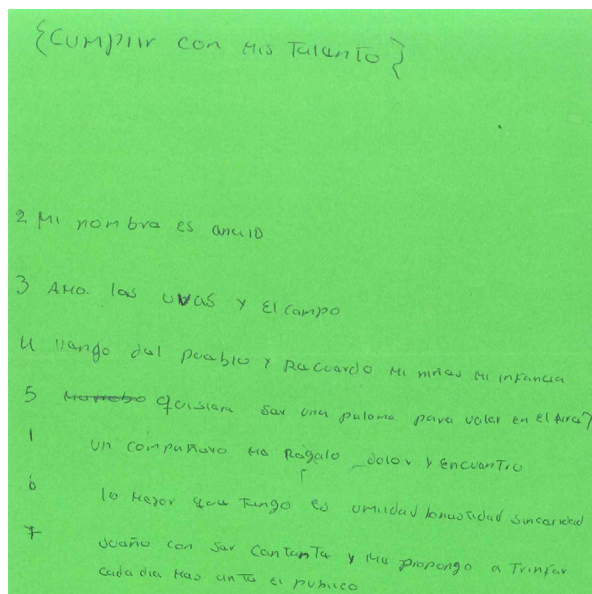 {Cumplir con mis Talento}
2 Mi nombra es
3 Amo. las uvas y el campo
4 Vango dal puablo y Racuardo mi niñas mi infancia
5 quisiara sar una paloma para volar en el aire
1 un compañaro ma Ragalo dolor y encuantro
6 lo major qua Tango es umildad honastidad sincaridad
7 suaño con sar cantanta y ma propongo a Trinfar
cada dia mas anta el publico